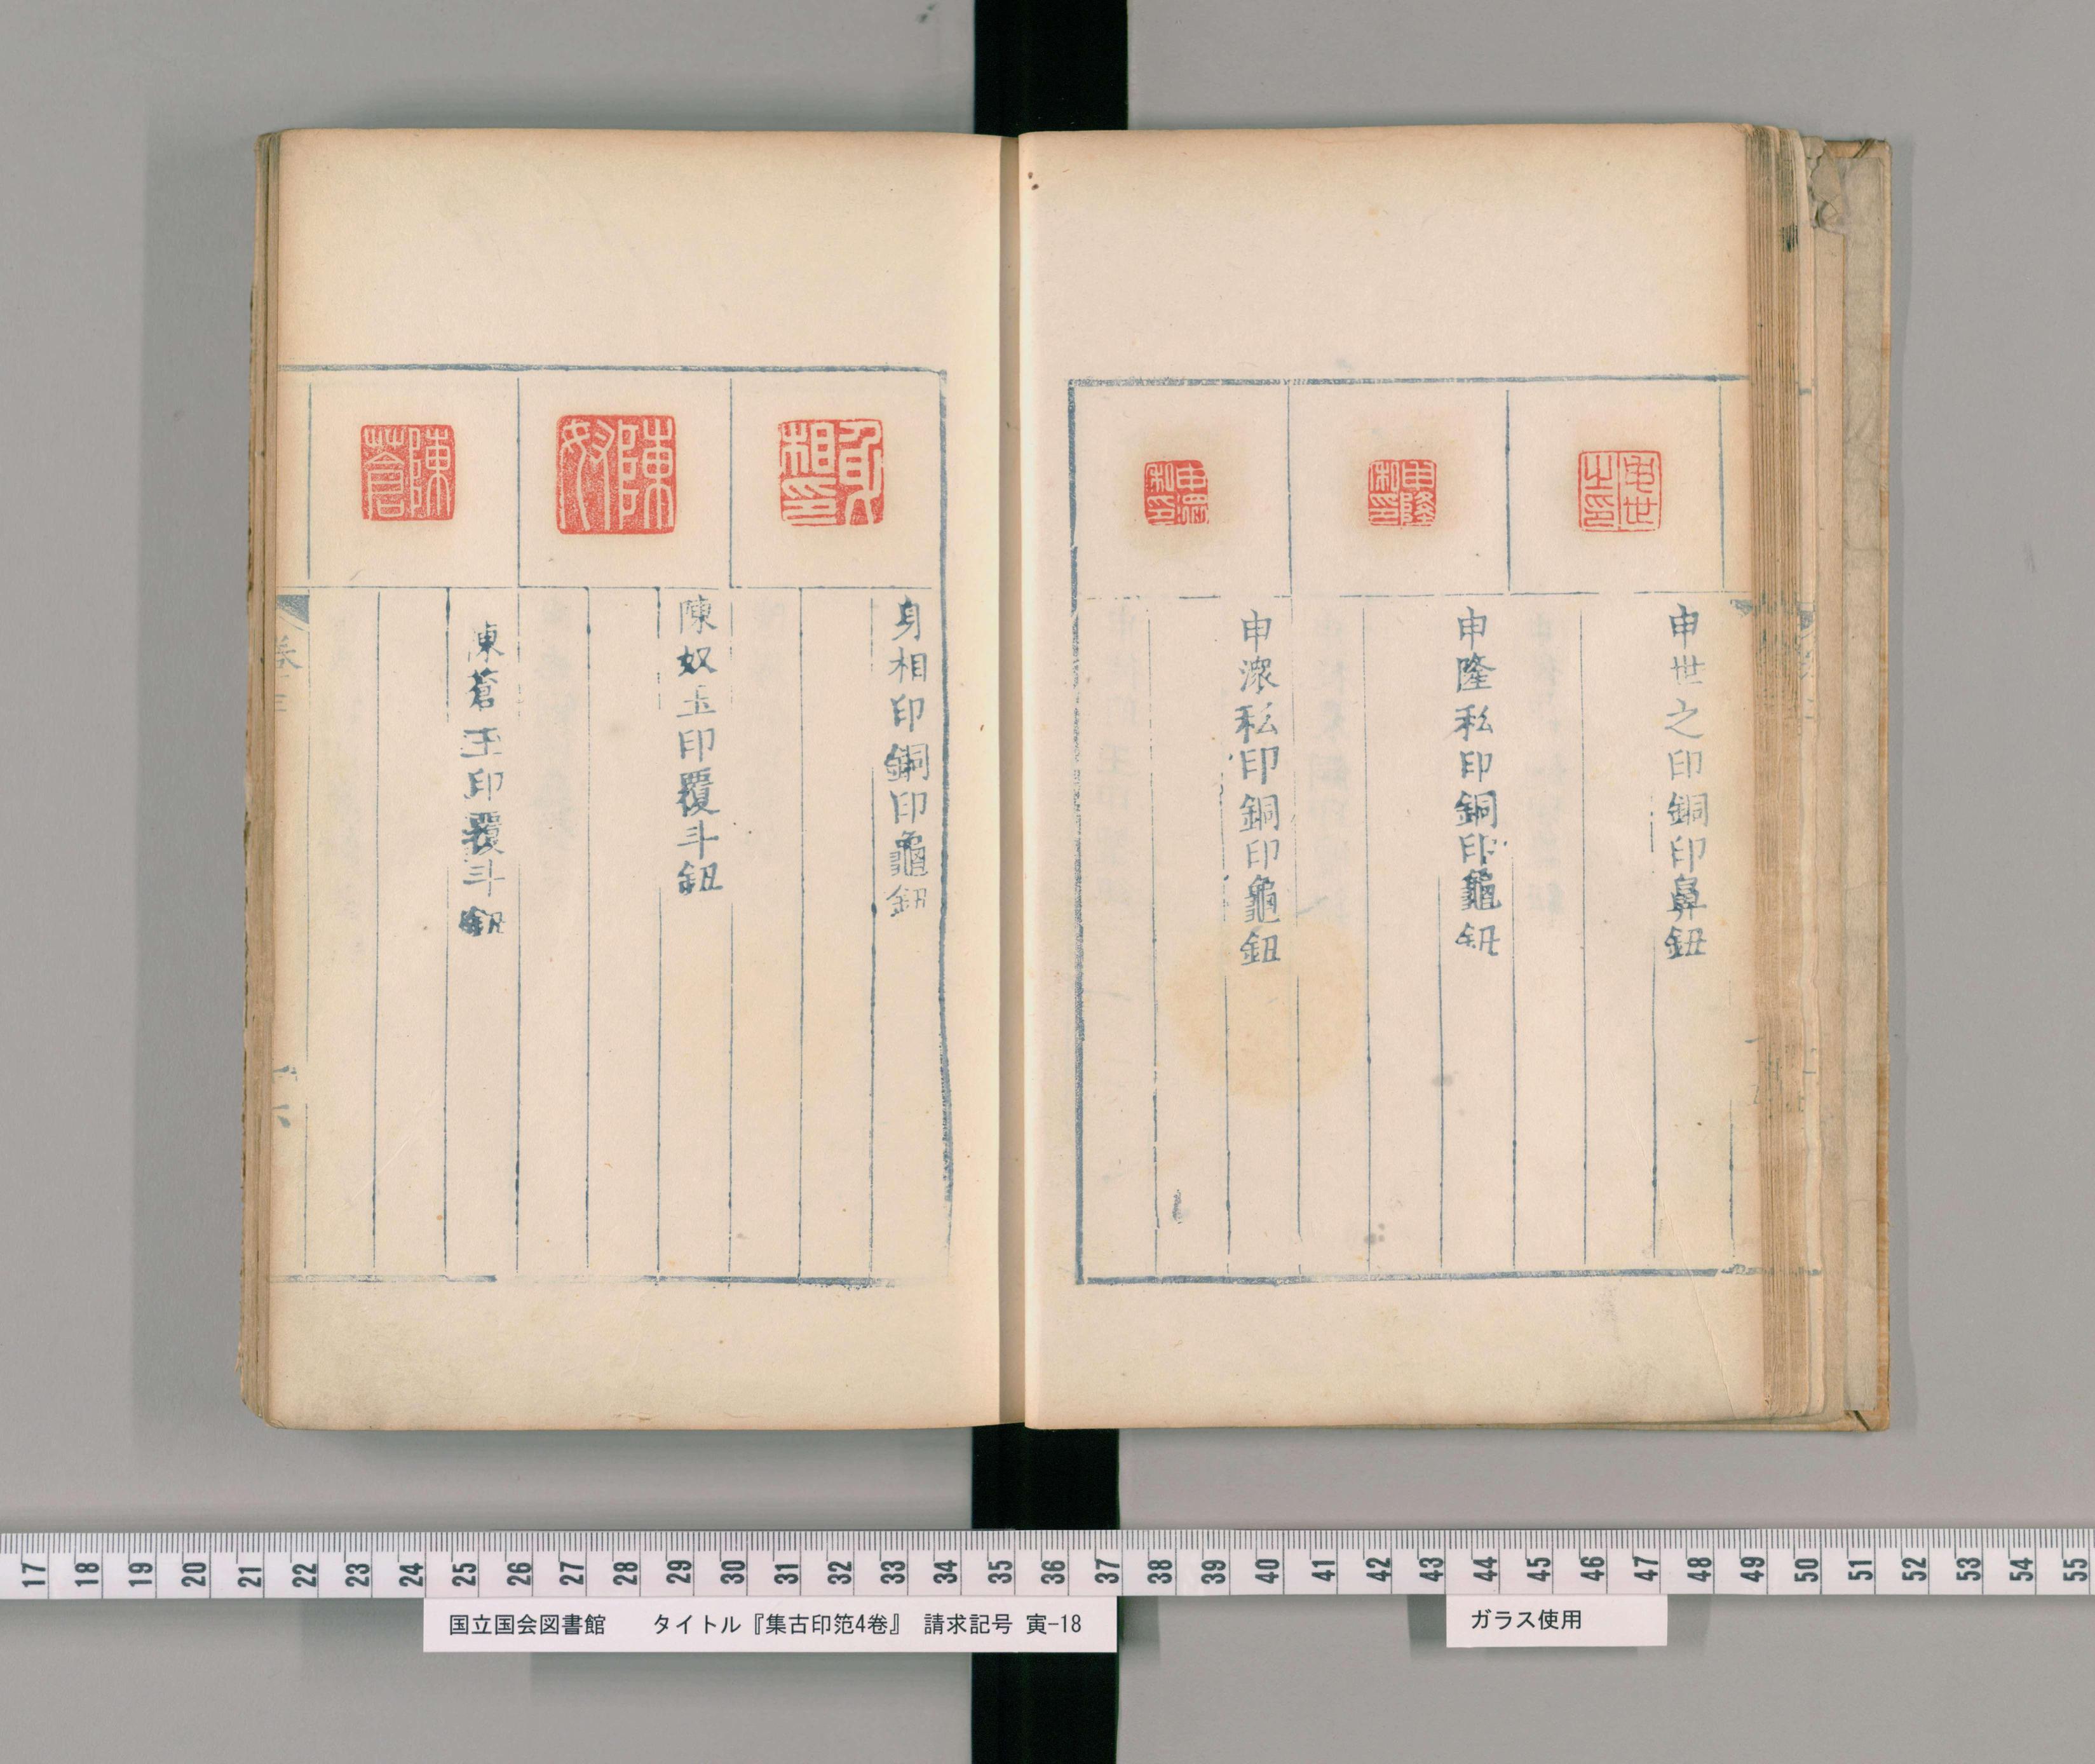 申世之印銅印鼻鈕
申隆私印銅印龜鈕
申濴私印銅印龜鈕
身相印銅印龜鈕
陳奴玉印覆斗鈕
陳蒼玉印覆斗鈕
卷三
十六
申世之印
申隆私印
陳蒼
17 18 19 20 21 22 23 24 25 26 27 28 29 30 31 32 33 34 35 36 37 38 39 40 41 42 43 44 45 46 47 48 49 50 51 52 53 54 55
国立国会図書館 タイトル『集古印笵4巻』 請求記号 寅-18
ガラス使用